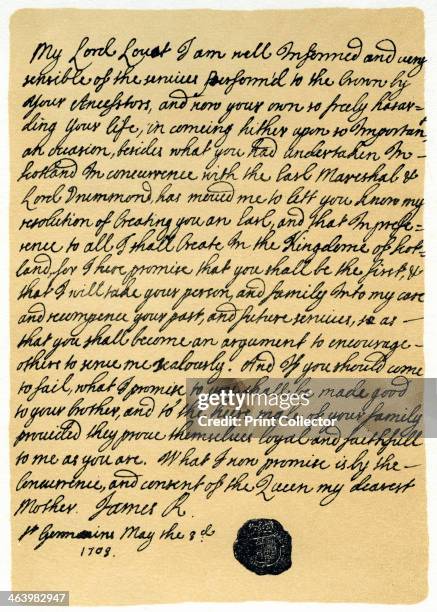 My Lord Lovat I am well Informed and very
sensible of the services perform'd to the Crown by
your Ancestors, and now your own so freely hasar-
ding your life, in comeing hither upon so Important
an occasion, besides what you had undertaken In-
Scotland In concurrence with the Earl Mareshal &
Lord Drummond, has moved me to lett you know my
resolution of Creating you an Earl, and that In prefe-
rence to all I shall Create In the Kingdome of Scot-
land, for I here promise that you shall be the first, &
that I will take your person, and family Into my care
and recompence your past, and future services, so as -
that you shall become an argument to encourage -
others to serve me zealously. And If you should come
to fail, what I promise to you shall be made good
to your brother, and to the heirs male of your family
provided they prove themselves loyal and faithfull
to me as you are. What I now promise is by the -
Concurrence, and consent of the Queen my dearest
Mother. James R.
St Germains May the 3d
1703.
gettyimages
Credit: Print Collector
463982947